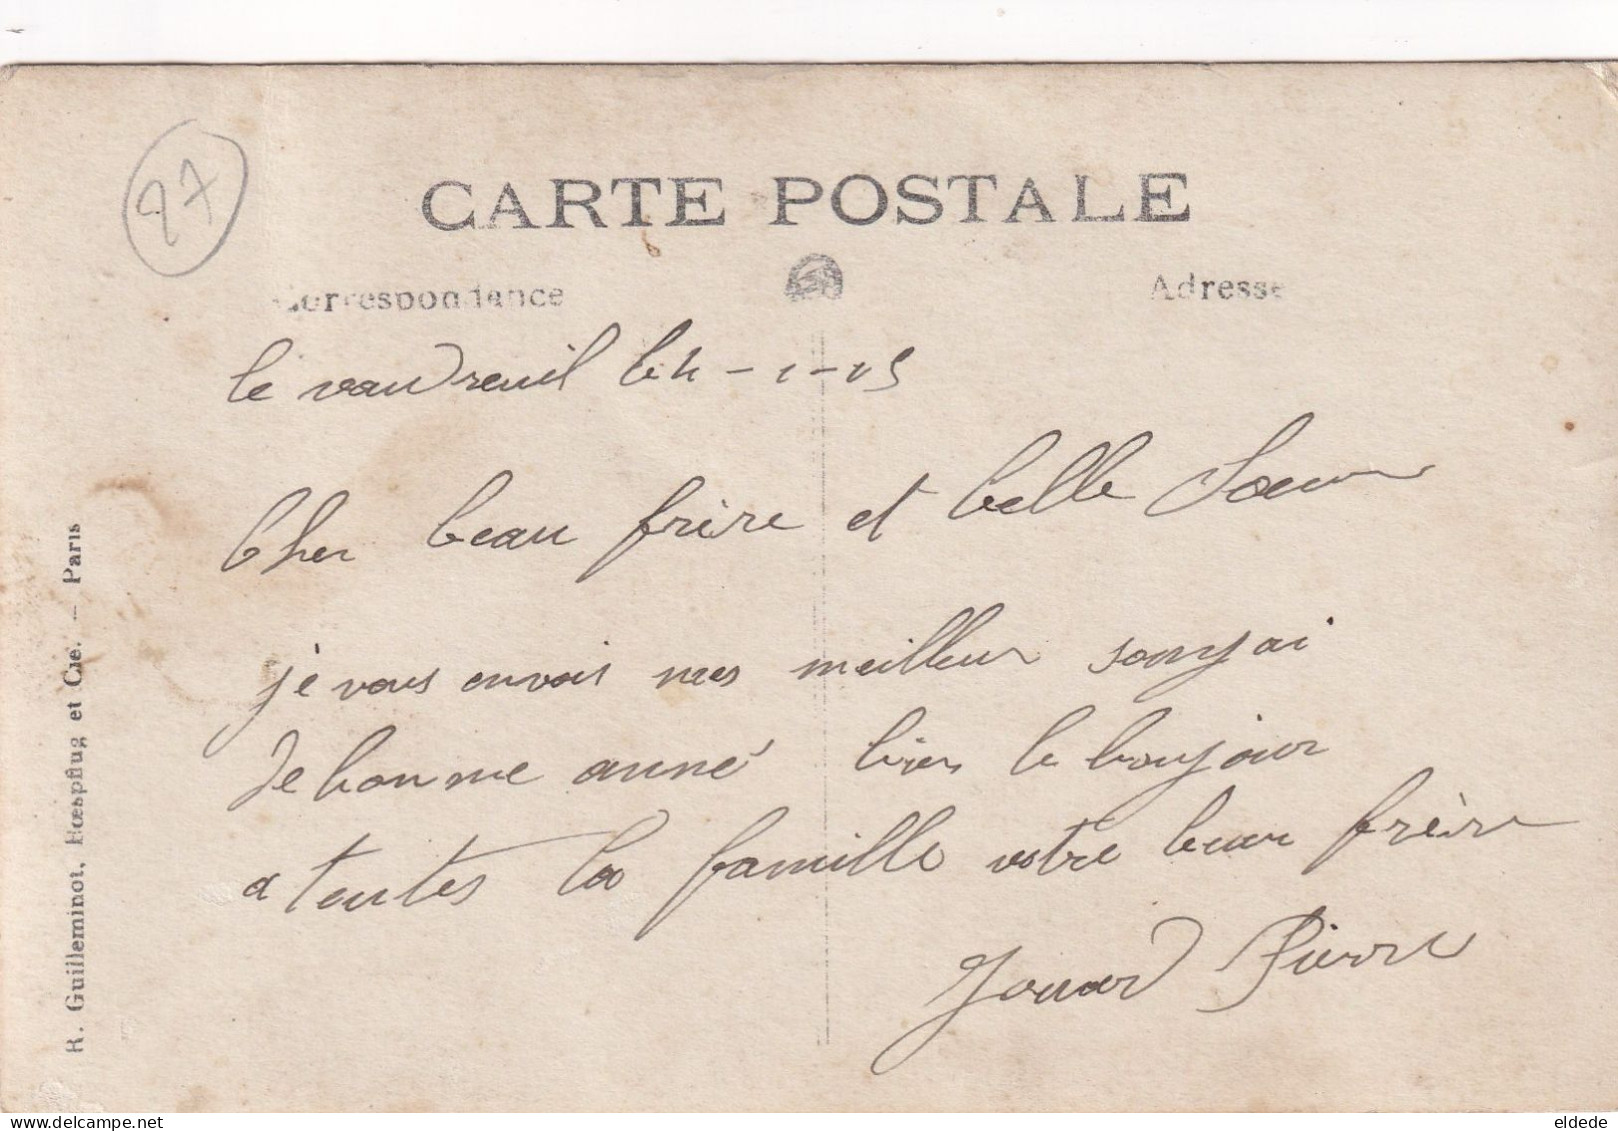 27
CARTE POSTALE
Correspondance
Adresse
le vaudreuil le 4-1-15
Cher beau frère et belle Soeur
je vous envois mes meilleur
de bonme anné bien le bonjour
a toutes la famille votre beau frère
Jouard Pierre
R. Guilleminot, Bœspflug et Cie. – Paris
eldede